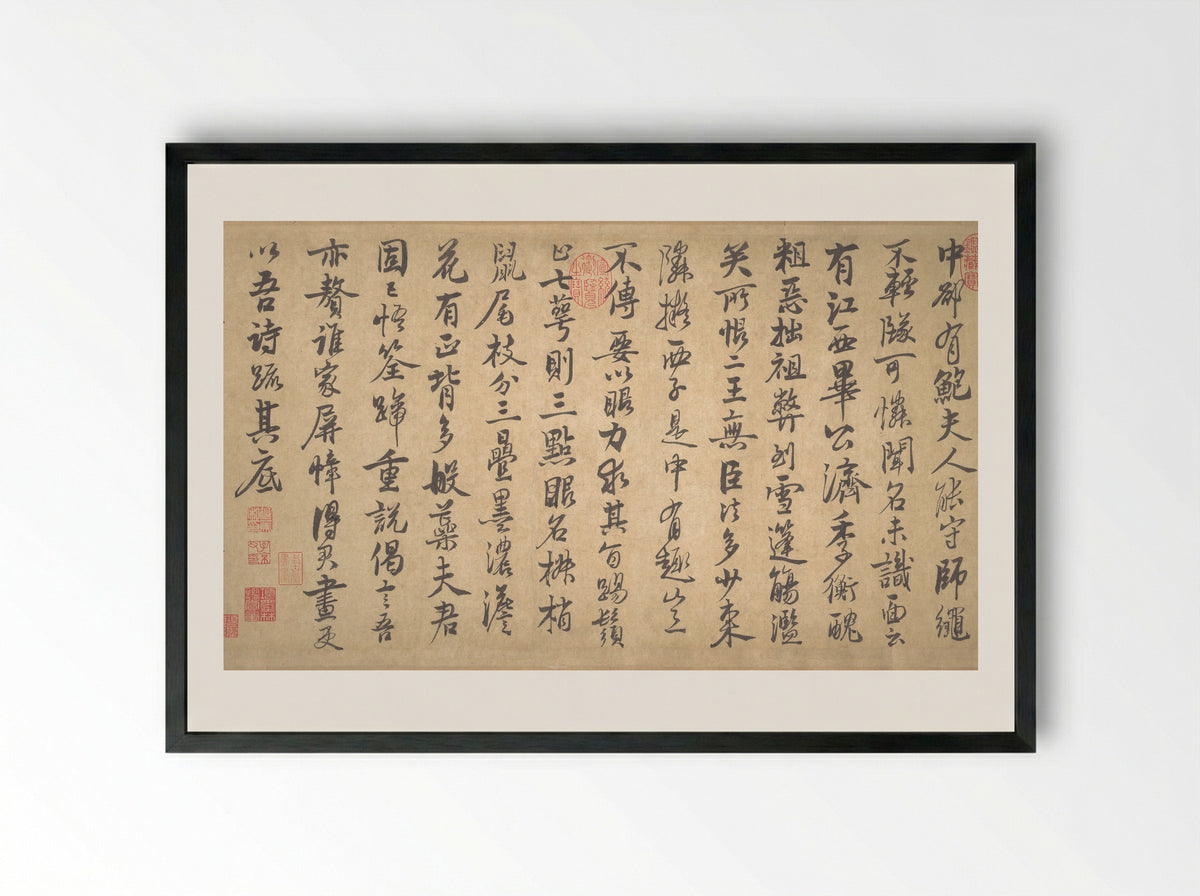 中郤有鮑夫人能守師繩
不輕隊可憐聞名未識面云
有江西畢公濟季衡醜
粗惡拙祖弊到雪篷觴濫
矣所恨二王無臣法多少東
隣擬西子是中有趣豈
不傳要以眼力求其旨踢鬚
止七萼則三點眼名椒梢
鼠尾枝分三疊墨濃澹
花有正背多般蘂夫君
固已悟筌蹄重說偈言吾
亦贅誰家屏幛得君畫更
以吾詩疏其底